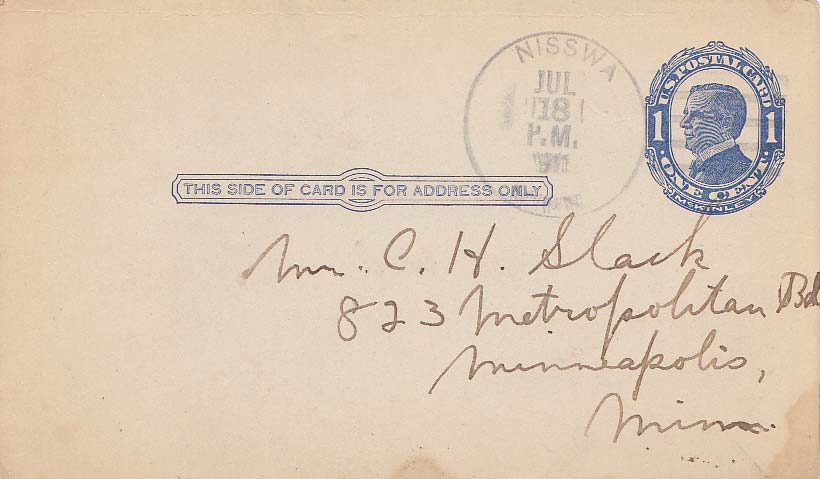 NISSWA
JUL
18
P.M.
1911
U.S. POSTAL CARD
1 1
· ONE CENT ·
McKINLEY
THIS SIDE OF CARD IS FOR ADDRESS ONLY
Mr. C. H. Slack
823 Metropolitan Bd
Minneapolis,
Minn.